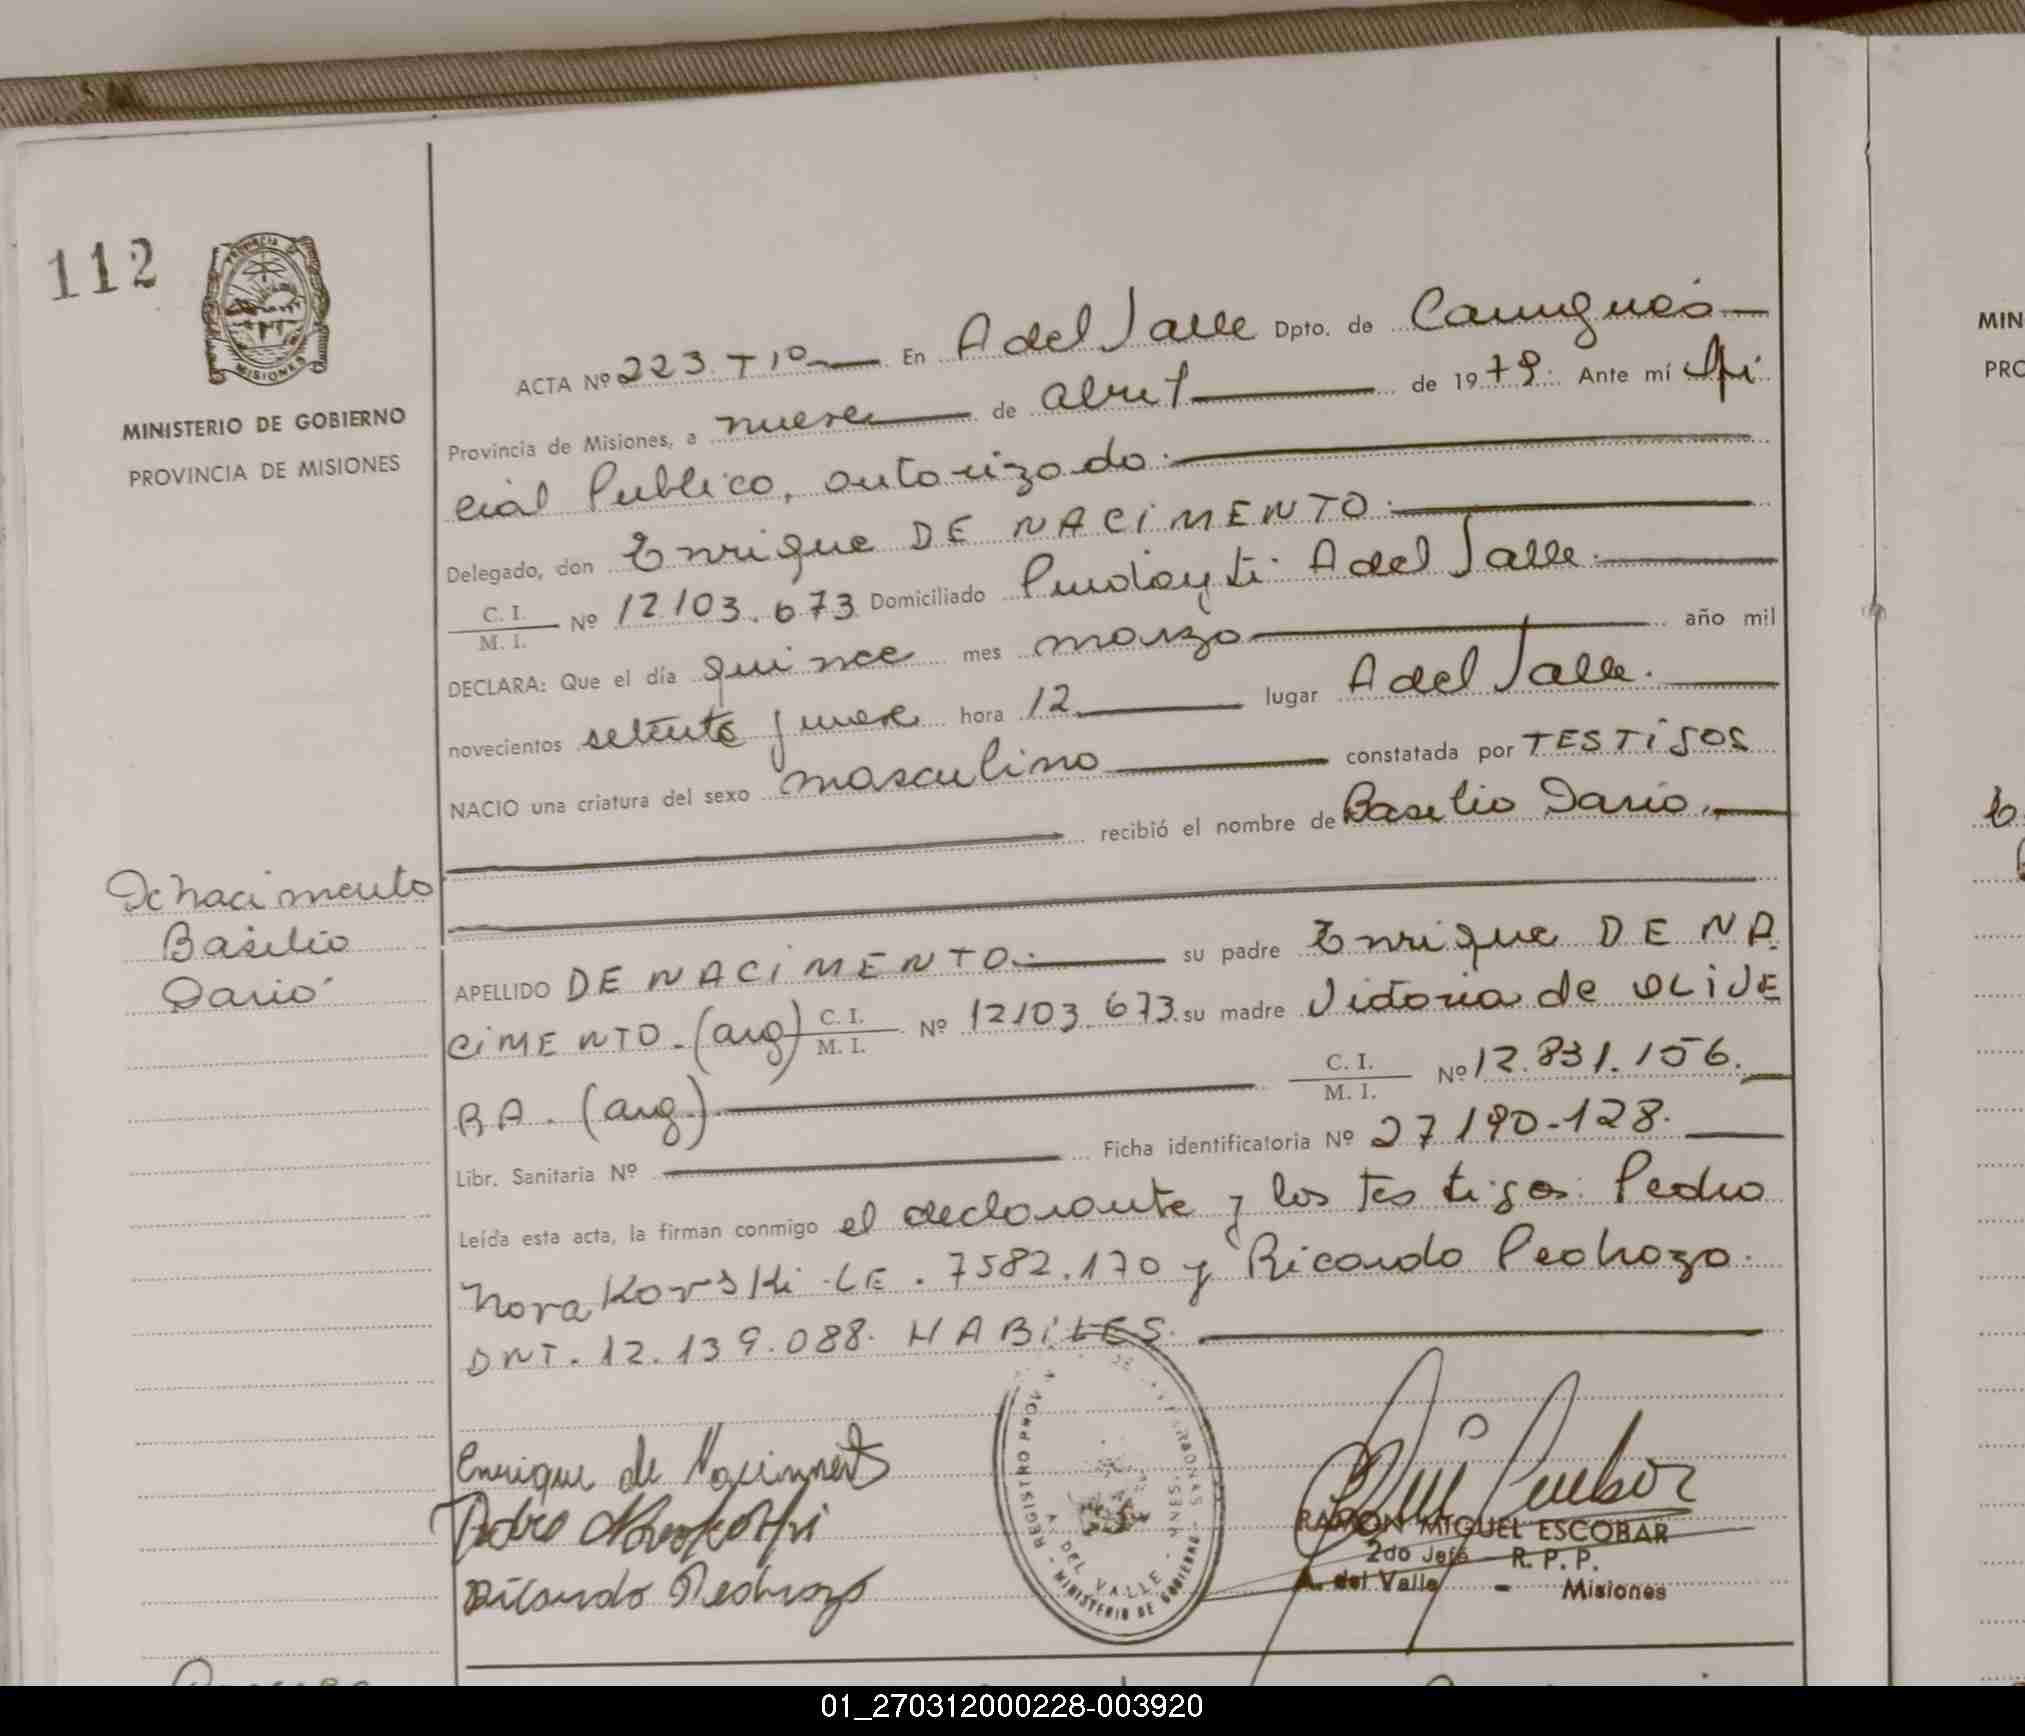 112
PROVINCIA DE
MISIONES
MINISTERIO DE GOBIERNO
PROVINCIA DE MISIONES
ACTA Nº 223 - Tº En A del Valle Dpto. de Cainguás
Provincia de Misiones, a nueve de abril de 1979. Ante mí Ofi
cial Publico, autorizado.
Delegado, don Enrique DE NACIMENTO.
C. I.
M. I. Nº 12103.673 Domiciliado Pindayti. A del Valle.
DECLARA: Que el día quince mes marzo año mil
novecientos setenta y nueve hora 12 lugar A del Valle.
NACIO una criatura del sexo masculino constatada por TESTIGOS
recibió el nombre de Basilio Dario.
De Nacimento
Basilio
Dario
APELLIDO DE NACIMENTO. su padre Enrique DE NA
CIMENTO. (arg) C. I.
M. I. Nº 12103.673. su madre Victoria de OLIVE
RA. (arg.) C. I.
M. I. Nº 12.831.156.
Libr. Sanitaria Nº Ficha identificatoria Nº 27190-128.
Leída esta acta, la firman conmigo el declarante y los testigos: Pedro
Norakovski LE. 7582.170 y Ricardo Pedrozo.
DNI. 12.139.088. HABILES.
Enrique de Naciment
Pedro
Ricardo Pedrozo
REGISTRO PROV
A. DEL VALLE - MNES.
MINISTERIO DE GOBIERNO
RAMON MIGUEL ESCOBAR
2do Jefe R. P. P.
A. del Valle - Misiones
MIN
PRO
01_270312000228-003920